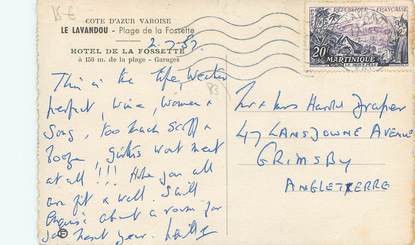 15 €
COTE D'AZUR VAROISE
LE LAVANDOU - Plage de la Fossette
HOTEL DE LA FOSSETTE
à 150 m. de la plage - Garages
This is the life, Weather
perfect, Wine, Women &
Song, too much Scoff &
booze, girths wont meet
at all !!! Hope you all
are fit & well. Shall
enquire about a room for
you next year.
Mr & Mrs Harry Draper
47 LANSDOWNE AVENUE
GRIMSBY
ANGLETERRE
REPUBLIQUE FRANÇAISE
20F
MARTINIQUE